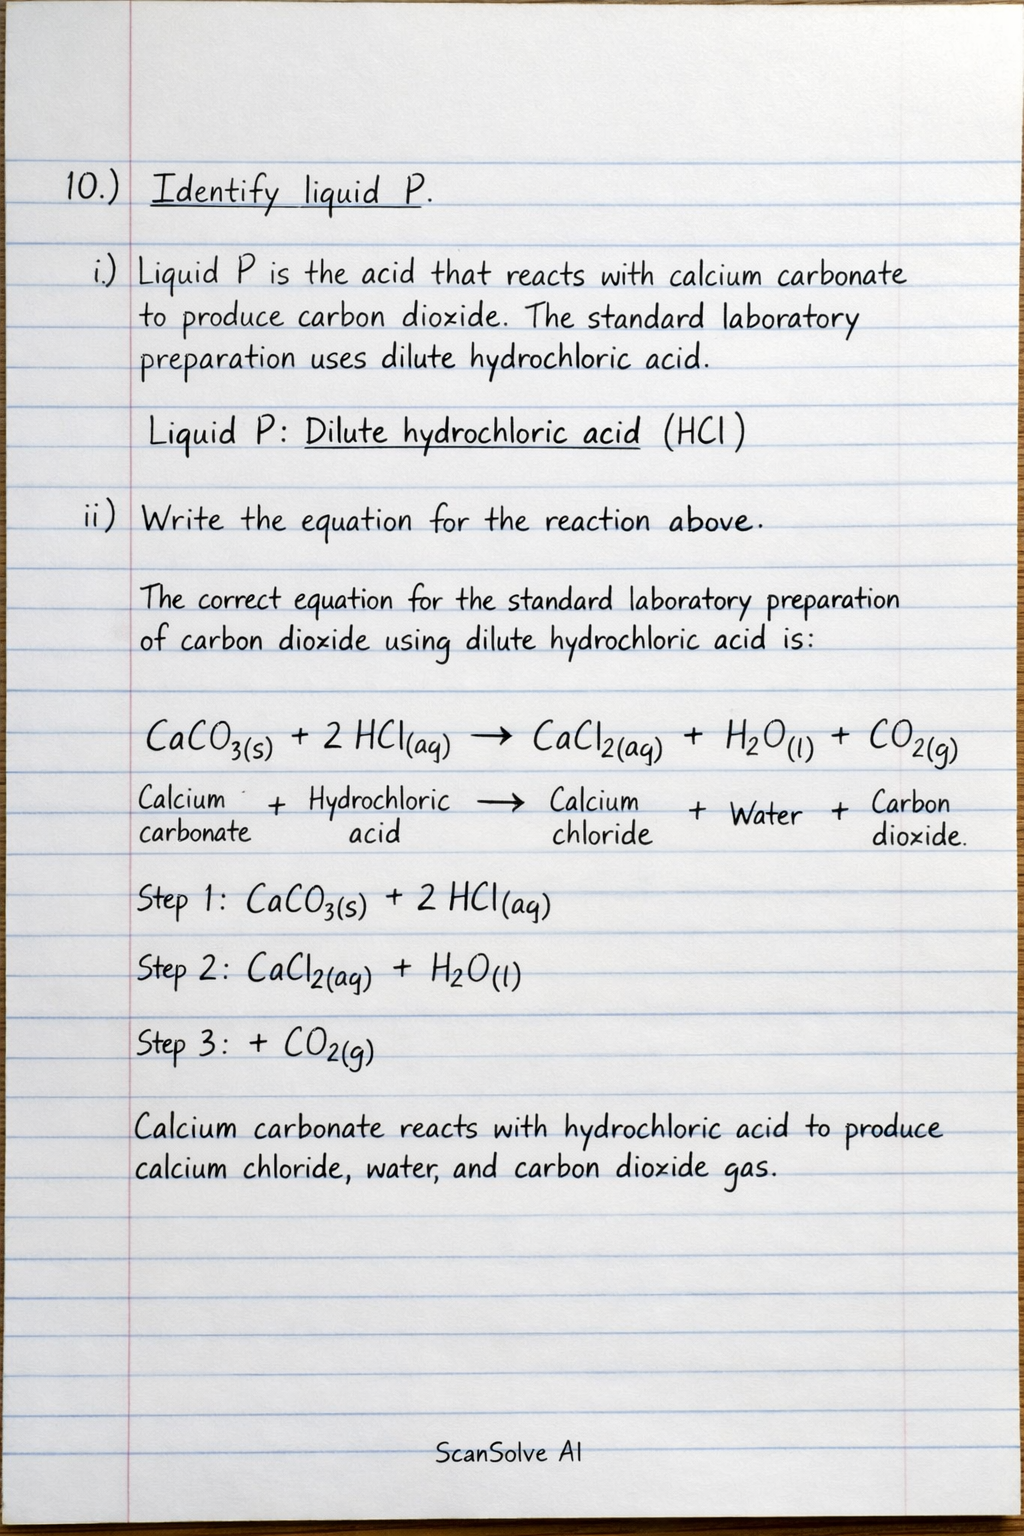 10.) Identify liquid P.
i.) Liquid P is the acid that reacts with calcium carbonate
to produce carbon dioxide. The standard laboratory
preparation uses dilute hydrochloric acid.
Liquid P: Dilute hydrochloric acid (HCl)
ii) Write the equation for the reaction above.
The correct equation for the standard laboratory preparation
of carbon dioxide using dilute hydrochloric acid is:
CaCO₃(s) + 2 HCl(aq) → CaCl₂(aq) + H₂O(l) + CO₂(g)
Calcium carbonate + Hydrochloric acid → Calcium chloride + Water + Carbon dioxide.
Step 1: CaCO₃(s) + 2 HCl(aq)
Step 2: CaCl₂(aq) + H₂O(l)
Step 3: + CO₂(g)
Calcium carbonate reacts with hydrochloric acid to produce
calcium chloride, water, and carbon dioxide gas.
ScanSolve AI